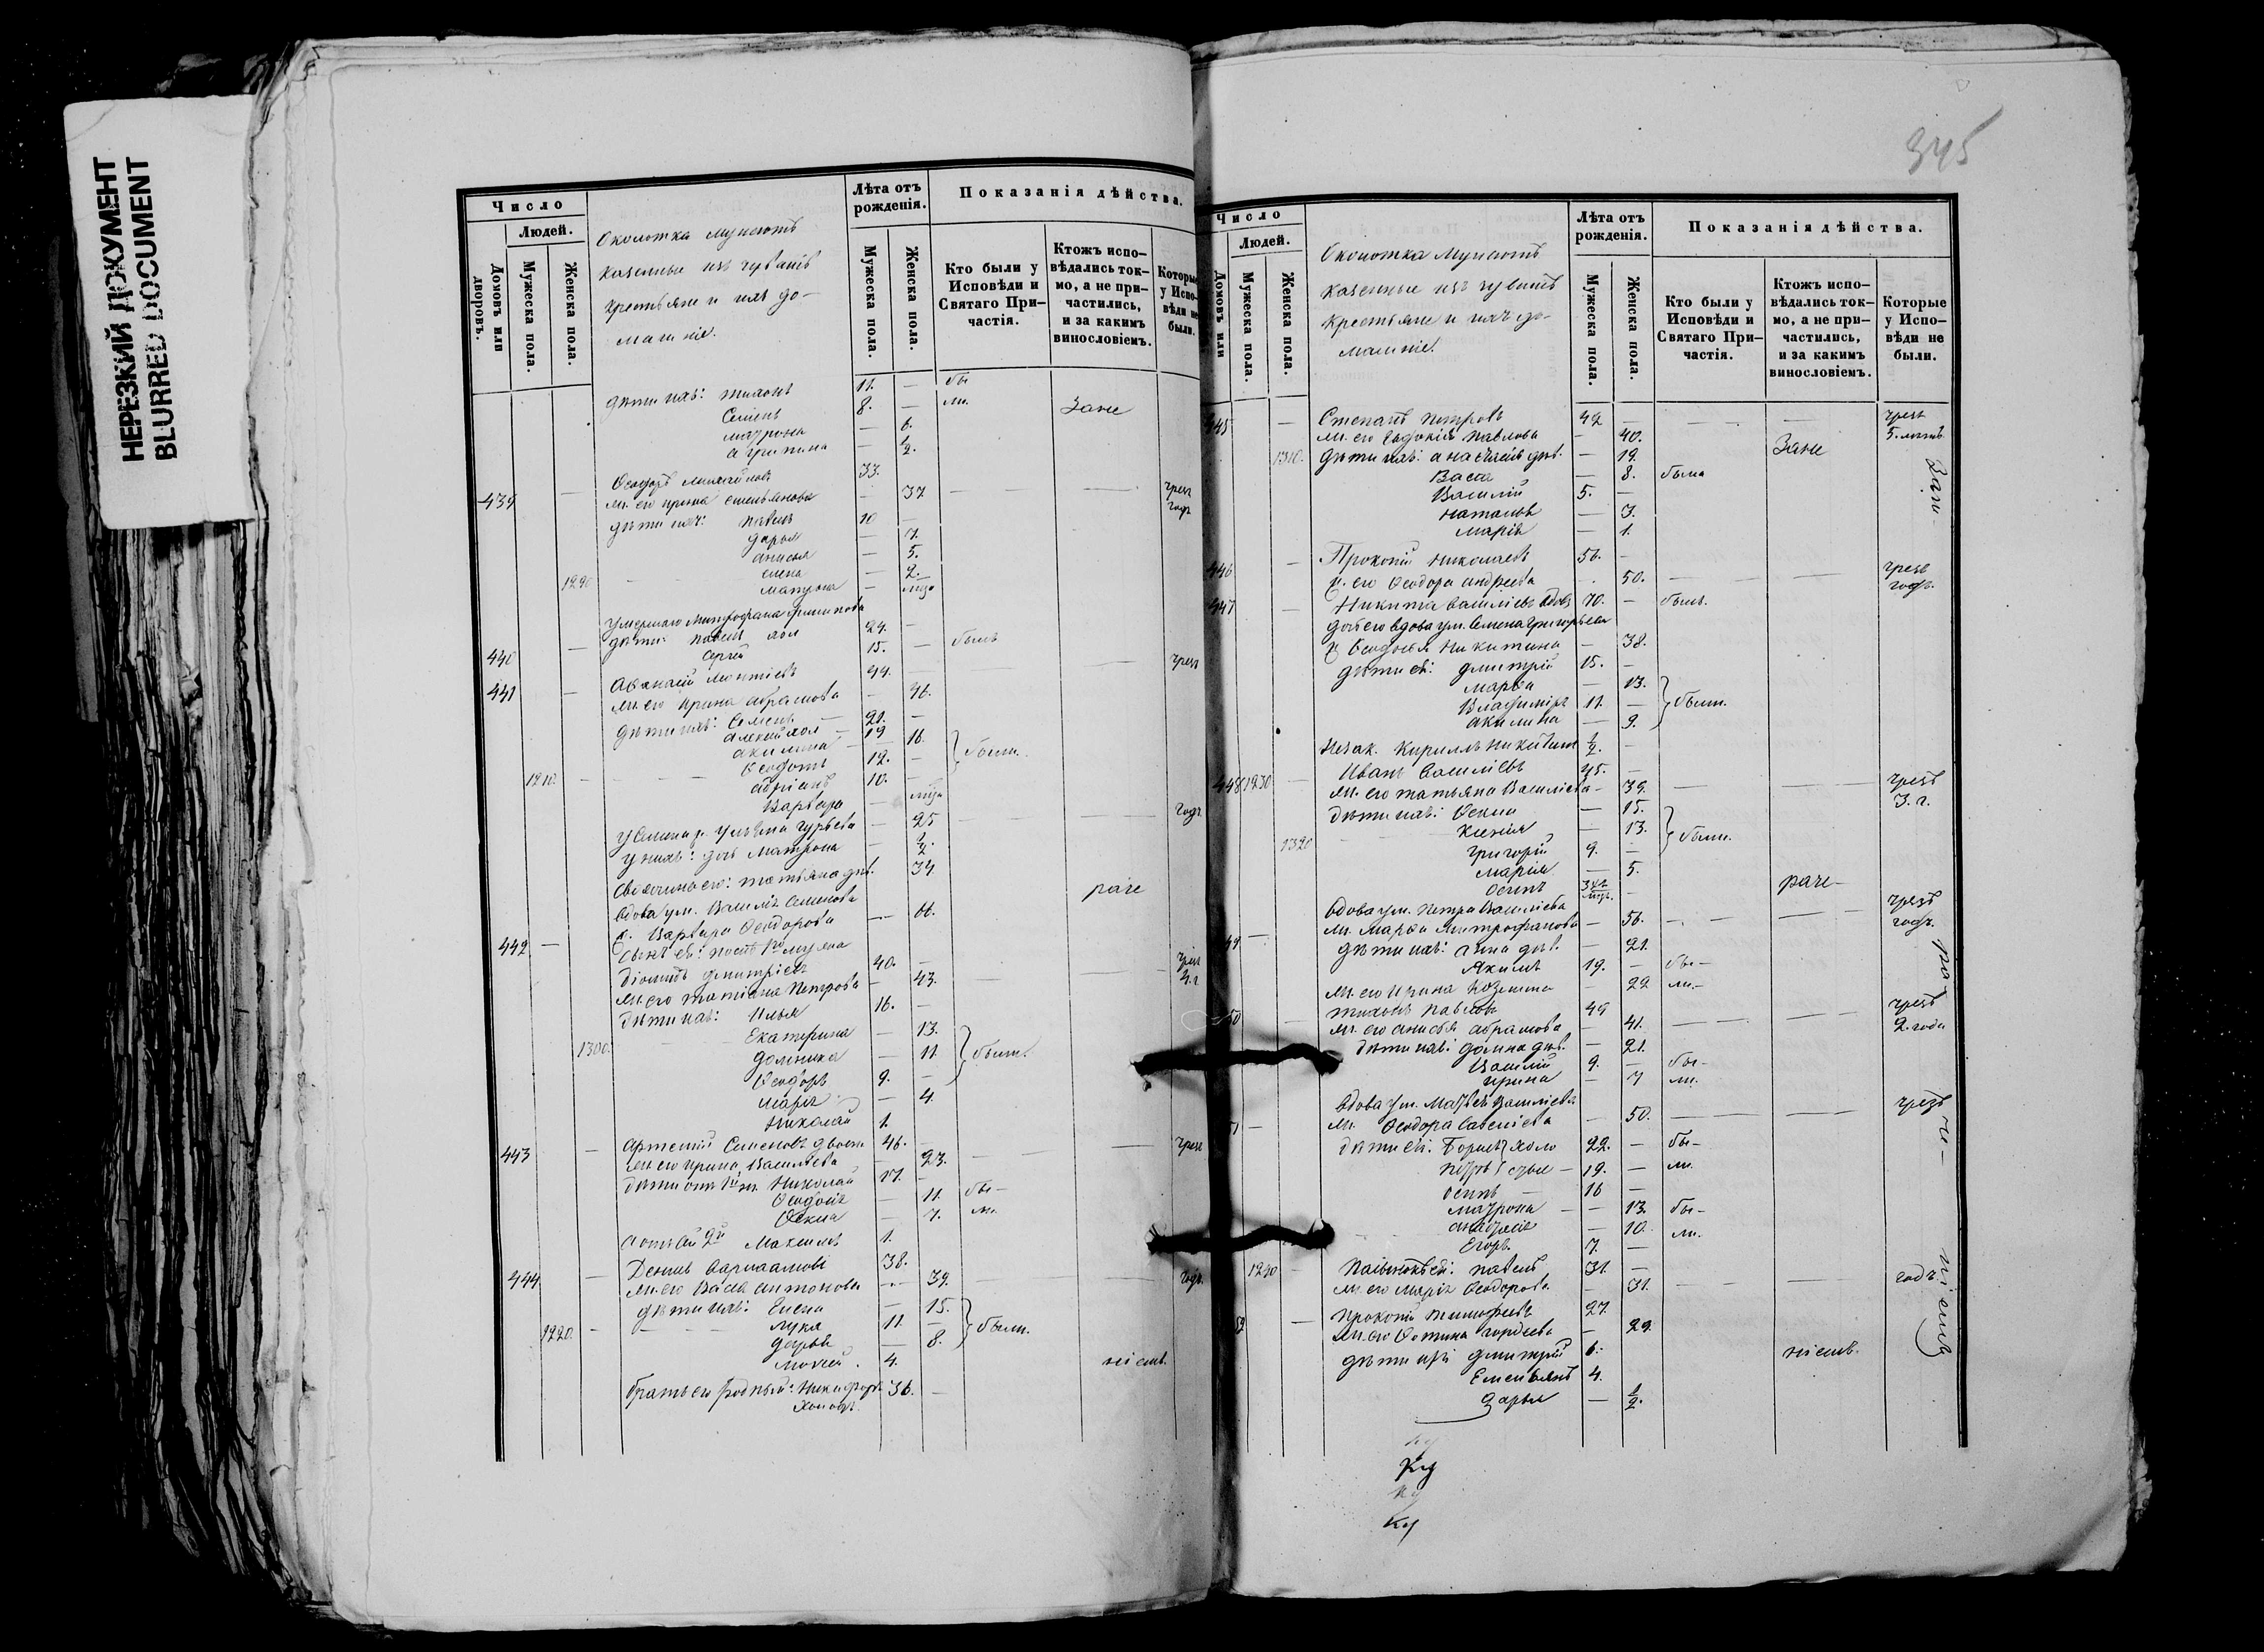 НЕРЕЗКИЙ ДОКУМЕНТ
BLURRED DOCUMENT
Число
Людей.
Домовъ или дворовъ.
Мужеска пола.
Женска пола.
Околотка
казенные изъ чувашъ
крестьяне и ихъ до-
машніе.
Лѣта отъ рожденія.
Мужеска пола.
Женска пола.
Показанія дѣйства.
Кто были у Исповѣди и Святаго При-частія.
Ктожъ испо-вѣдались ток-мо, а не при-частились, и за какимъ винословіемъ.
Которые у Испо-вѣди не были.
дѣти ихъ: Тихонъ 11. — бы
Семенъ 8. — ли. Зане
Матрона — 6.
Агрипина — 1/2.
Ѳеодоръ Михайловъ 33.
439 — ж. его Ирина Емельянова — 37 — — чрез годъ
дѣти ихъ: Павелъ 10 —
Дарья — 7.
Анисья — 5.
Елена — 2.
1290 Матрона —
умершаго Митрофана Филипова
дѣти: Павелъ хол 24. —
440 — Сергей 15. — былъ
441 — Аѳанасій Леонтіевъ 44. — — чрез
ж. его Ирина Абрамова — 46.
дѣти ихъ: Семенъ — 21. —
Алексей хол — 19
Акилина — 16.
Ѳеодотъ 12. — } были.
1210. — Адріанъ 10. —
Варвара —
у Семена ж. Ульяна Гурьева — 25 — — годъ
у нихъ: дочь Матрона — 1/2.
свояченица его: Татьяна дѣв. 34.
вдова ум. Василія Семенова раче
442 — ж. Варвара Ѳеодорова — 66.
Діомидъ Дмитріевъ 40. — чрез
ж. его Татіана Петрова — 43. — — 4. г
дѣти ихъ: Илья 16. —
Екатерина — 13.
1300. Домника — 11 } были.
Ѳеодоръ 9. —
Марія — 4.
Николай 1.
443 — Артемій Семеновъ 46. — — чрез
ж. его Ирина Васильева — 23. —
дѣти отъ 1й ж. Николай 17. —
Ѳеодосія — 11. бы-
Ѳекла — 7. ли.
а отъ сей 2й Максимъ 1.
444 — Денисъ Варлаамовъ 38.
ж. его Васса Антонова — 39. — годъ
дѣти ихъ: Елена — 15.
1220. — Лука 11 — } были.
Дарья — 8.
Моисей 4. ніемъ.
братъ его родный: Никифоръ 36. —
холостъ
345
Число
Людей.
Домовъ или
Мужеска пола.
Женска пола.
Околотка
казенные изъ чувашъ
крестьяне и ихъ до-
машніе.
Лѣта отъ рожденія.
Мужеска пола.
Женска пола.
Показанія дѣйства.
Кто были у Исповѣди и Святаго При-частія.
Ктожъ испо-вѣдались ток-мо, а не при-частились, и за какимъ винословіемъ.
Которые у Испо-вѣди не были.
445 — Степанъ Петровъ 42 — — — чрезъ
ж. его Евдокія Павлова — 40. 5. лѣтъ.
1310. дѣти ихъ: Анастасія дѣв. — 19. Зане
Васса — 8. была
Василій 5. —
Наталья — 3.
Марія — 1.
446 — Прокопій Николаевъ 56. —
ж. его Ѳеодора Андреева — 50. — — чрезъ годъ.
447 — Никита Василіевъ вдовъ 70. — былъ.
дочь его вдова ум. Семена Григорьева
ж. Ѳеодосья Никитина — 38.
дѣти ея: Дмитрій 15. —
Марѳа — 13.
Владиміръ 11. — } были.
Акилина — 9.
незак. Кириллъ Никитинъ 1/2. —
448 1230 — Иванъ Василіевъ 45. —
ж. его Татьяна Василіева — 39. — — чрезъ 3. г.
дѣти ихъ: Ѳекла — 15.
1320 Ксенія — 13. } были.
Григорій 9. —
Марія — 5.
Осипъ — раче-
вдова ум. Петра Василіева чрезъ
49 — ж. Марѳа Митрофанова — 56. — — годъ.
дѣти ихъ: Анна дѣв. — 21.
Якимъ 19. — бы-
ж. его Ирина Козмина — 22 ли.-
50 — Тихонъ Павловъ 49 чрезъ
ж. его Анисья Абрамова — 41. — — 2. года
дѣти ихъ: Домна дѣв. — 21.
Василій 9. — бы-
Ирина — 7 ли.
вдова ум. Матвея Василіева
51 — ж. Ѳеодора Савеліева — 50. — — чрезъ
дѣти ея: Борисъ } холо 22. — бы-
Петръ } стые — 19. — ли.
Осипъ — 16 —
Матрона — 13. бы-
Анастасія — 10. ли.
Егоръ 7. —
1240 — Павелъ 31. —
ж. его Марія Ѳеодорова — 31. — — годъ.
52 — Прокопій Тимофеевъ 27.
ж. его Ѳотина Гордеева — 29.
дѣти ихъ: Дмитрій 6. ніемъ.
Емельянъ 4.
Дарья — 1/2.